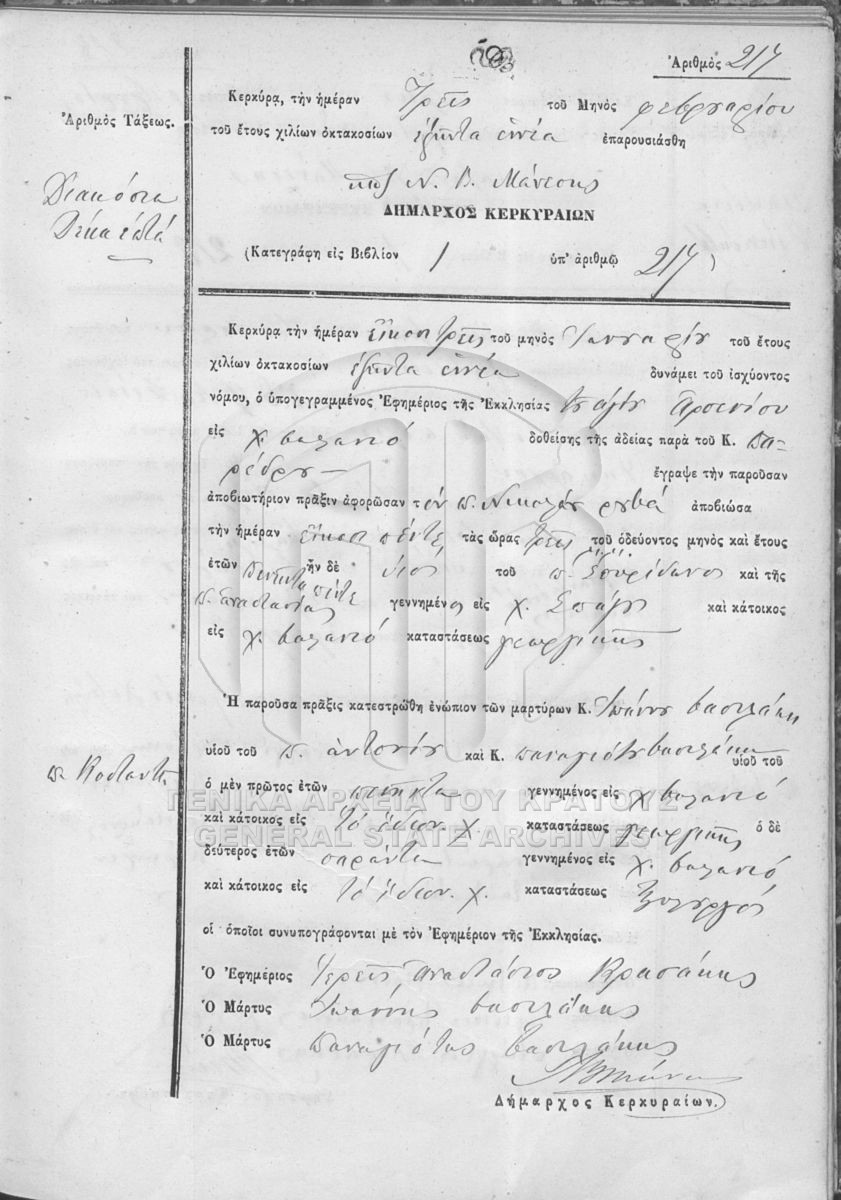 Ἀριθμὸς 217
Κερκύρᾳ, τὴν ἡμέραν Τρεῖς τοῦ Μηνὸς φεβρουαρίου
Ἀριθμὸς Τάξεως.
τοῦ ἔτους χιλίων ὀκτακοσίων ἑξῆντα ἐννέα ἐπαρουσιάσθη
Διακόσια
Δέκα ἑπτά
Ν. Β. Μάνεσης
ΔΗΜΑΡΧΟΣ ΚΕΡΚΥΡΑΙΩΝ
(Κατεγράφη εἰς Βιβλίον 1 ὑπ' ἀριθμῷ 217)
Κερκύρᾳ τὴν ἡμέραν εἴκοσι τρεῖς τοῦ μηνὸς Ἰανουαρίου τοῦ ἔτους
χιλίων ὀκτακοσίων ἑξῆντα ἐννέα δυνάμει τοῦ ἰσχύοντος
νόμου, ὁ ὑπογεγραμμένος Ἐφημέριος τῆς Ἐκκλησίας τοῦ ἁγίου Ἀρσενίου
εἰς χ. βαλανιό δοθείσης τῆς ἀδείας παρὰ τοῦ Κ. Πα-
ρέδρου ἔγραψε τὴν παροῦσαν
ἀποβιωτήριον πρᾶξιν ἀφορῶσαν τὸν π. Νικολάου ἀποβιώσα
τὴν ἡμέραν εἴκοσι πέντε τὰς ὥρας τρεῖς τοῦ ὁδεύοντος μηνὸς καὶ ἔτους
ἐτῶν πενῆντα πέντε ἦν δὲ υἱός τοῦ π. Σπυρίδωνος καὶ τῆς
π. Αναστασίας γεννημένος εἰς χ. Σπάγου καὶ κάτοικος
εἰς χ. βαλανιό καταστάσεως γεωργικῆς
Ἡ παροῦσα πρᾶξις κατεστρώθη ἐνώπιον τῶν μαρτύρων Κ. Ἰωάννου βασιλάκη
υἱοῦ τοῦ π. ἀντονίου καὶ Κ. παναγιότου βασιλάκη υἱοῦ τοῦ
π. Κοσταντῆ
ὁ μὲν πρῶτος ἐτῶν πενῆντα γεννημένος εἰς χ. βαλανιό
καὶ κάτοικος εἰς τὸ ἴδιον. χ. καταστάσεως γεωργικῆς ὁ δὲ
δεύτερος ἐτῶν σαράντα γεννημένος εἰς χ. βαλανιό
καὶ κάτοικος εἰς τὸ ἴδιον. χ. καταστάσεως ξυλουργός
οἱ ὁποῖοι συνυπογράφονται μὲ τὸν Ἐφημέριον τῆς Ἐκκλησίας.
Ὁ Ἐφημέριος Ἱερεῖς Αναστάσιος Κρασάκης
Ὁ Μάρτυς Ἰωάννης βασιλάκης
Ὁ Μάρτυς Παναγιότης βασιλάκης
Δήμαρχος Κερκυραίων.
ΓΕΝΙΚΑ ΑΡΧΕΙΑ ΤΟΥ ΚΡΑΤΟΥΣ
GENERAL STATE ARCHIVES